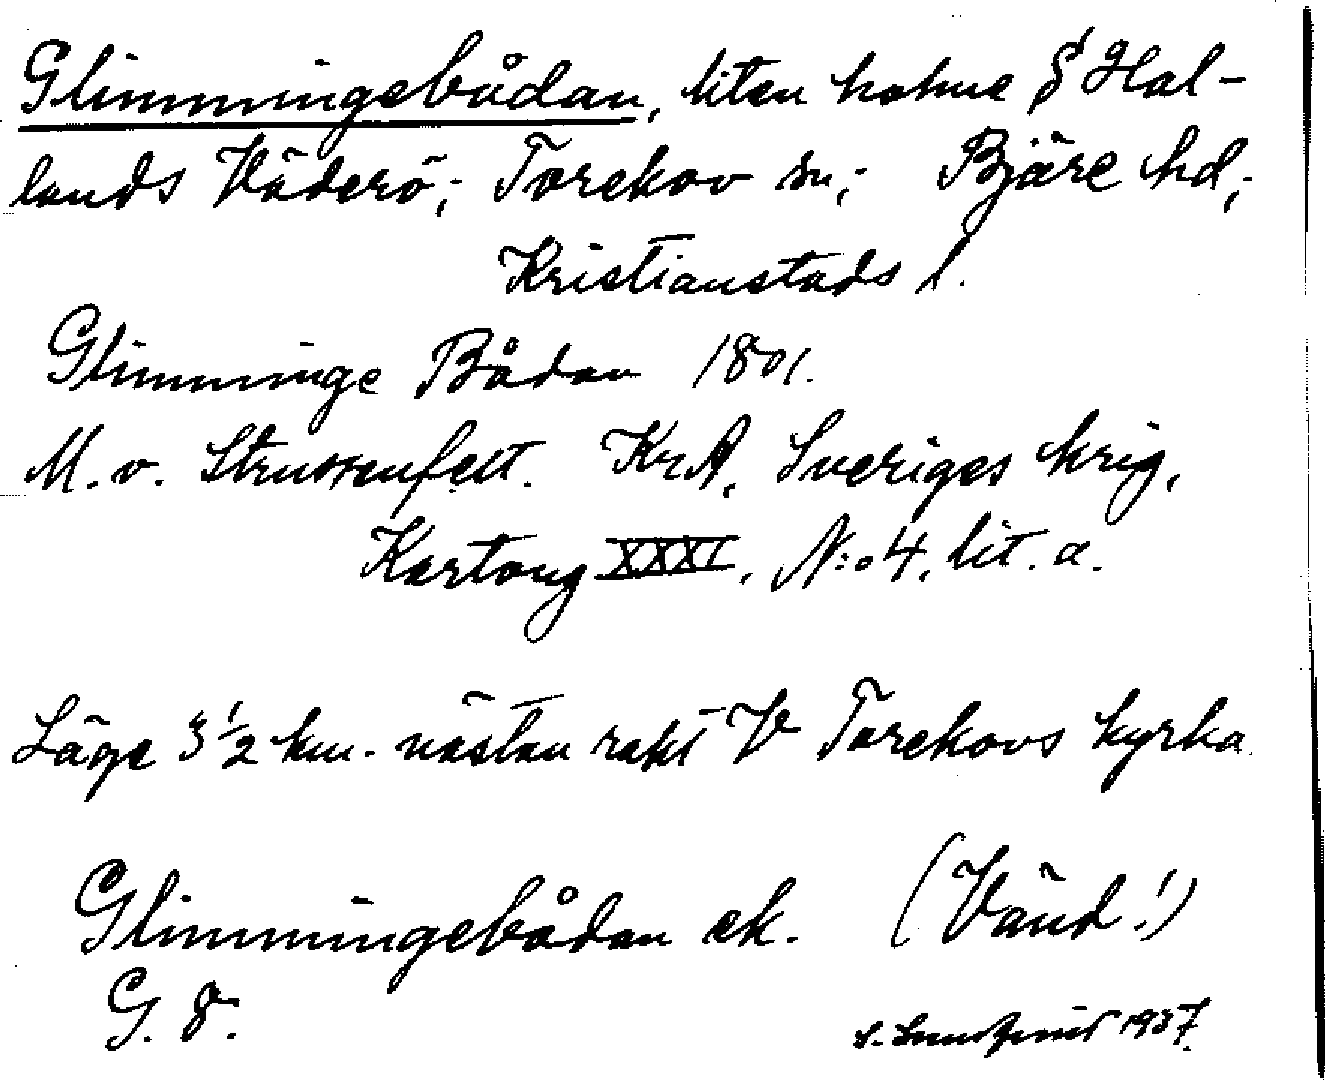 Glimmingebådan, liten holme S Hal-
lands Väderö; Torekov sn; Bjäre hd;
Kristianstads l.
Glimminge Bådan 1801.
M. v. Strussenfelt. KrA, Sveriges krig,
Kartong XXXI, N:o 4, lit. a.
Läge 3 1/2 km. nästan rakt V Torekovs kyrka.
Glimmingebådan ek. (Vänd!)
G. 8.
1937.